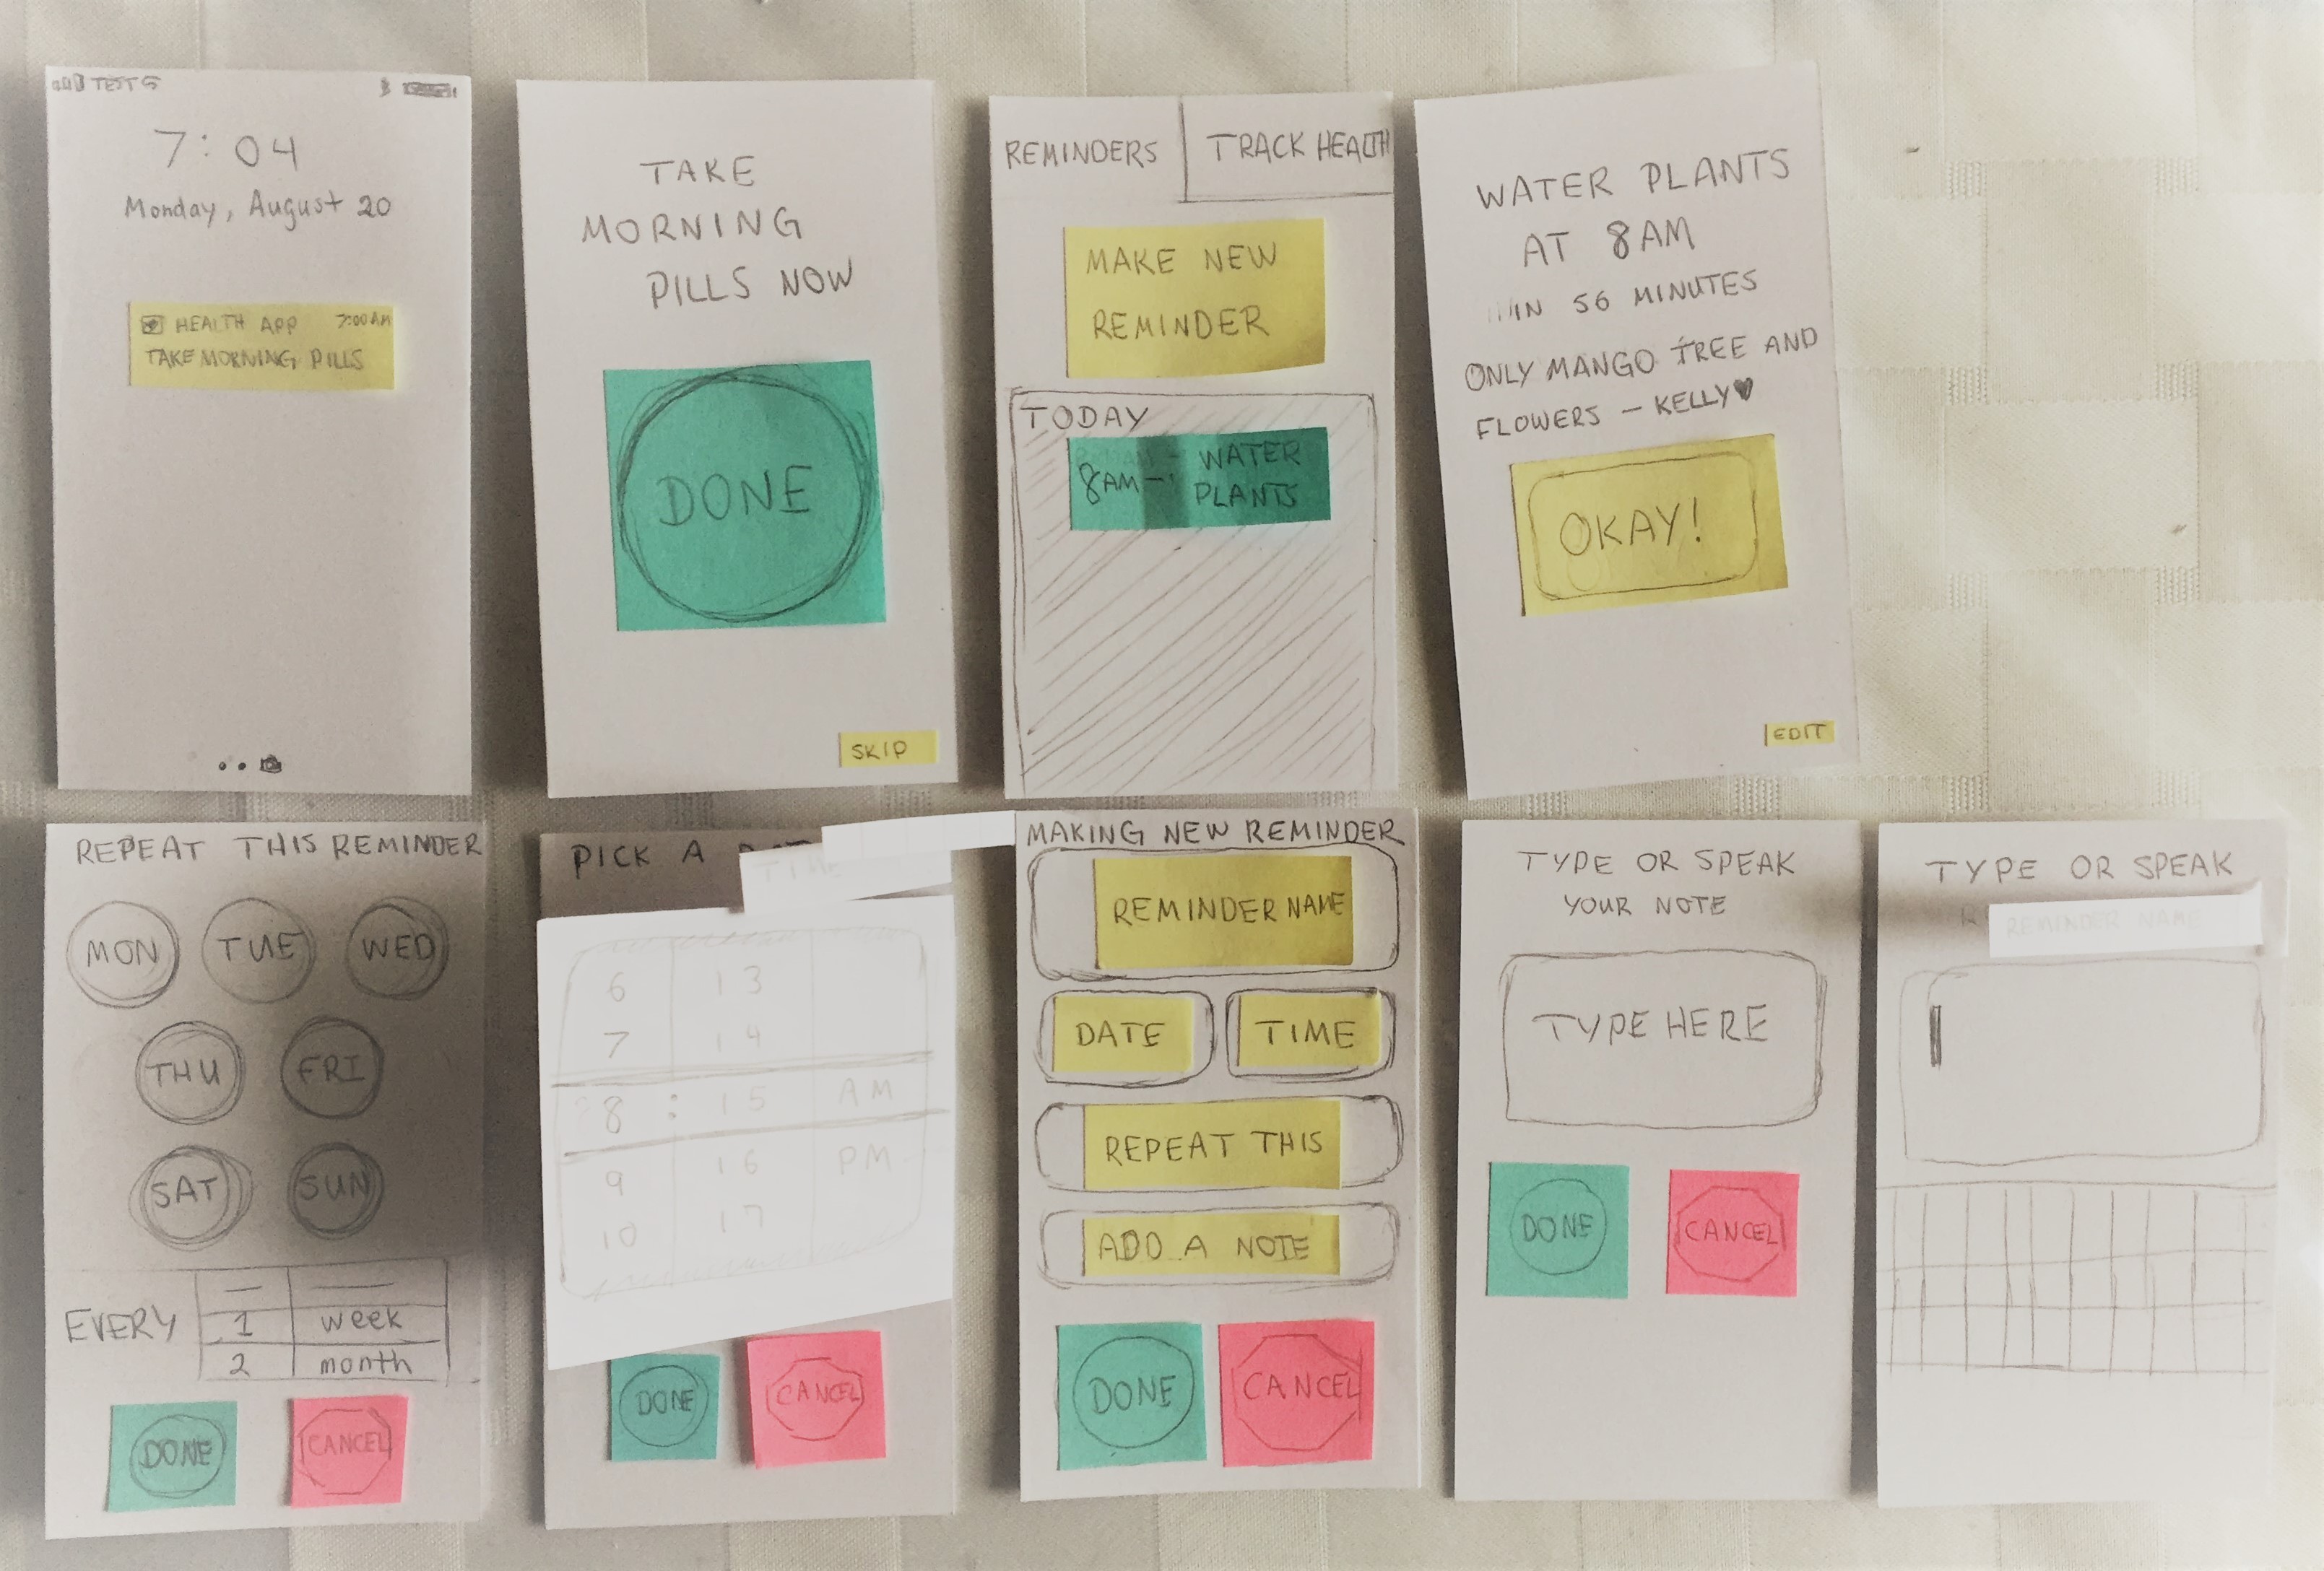 TEST
7:04
Monday, August 20
HEALTH APP 7:00 AM
TAKE MORNING PILLS
TAKE
MORNING
PILLS NOW
DONE
SKIP
REMINDERS
TRACK HEALTH
MAKE NEW
REMINDER
TODAY
8AM - WATER
PLANTS
WATER PLANTS
AT 8AM
IN 56 MINUTES
ONLY MANGO TREE AND
FLOWERS - KELLY♥
OKAY!
EDIT
REPEAT THIS REMINDER
MON TUE WED
THU FRI
SAT SUN
EVERY
1 week
2 month
DONE CANCEL
PICK A
TIME
6 13
7 14
8 : 15 AM
9 16 PM
10 17
DONE CANCEL
MAKING NEW REMINDER
REMINDER NAME
DATE TIME
REPEAT THIS
ADD A NOTE
DONE CANCEL
TYPE OR SPEAK
YOUR NOTE
TYPE HERE
DONE CANCEL
TYPE OR SPEAK
REMINDER NAME